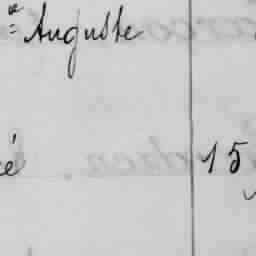 Auguste
é 15